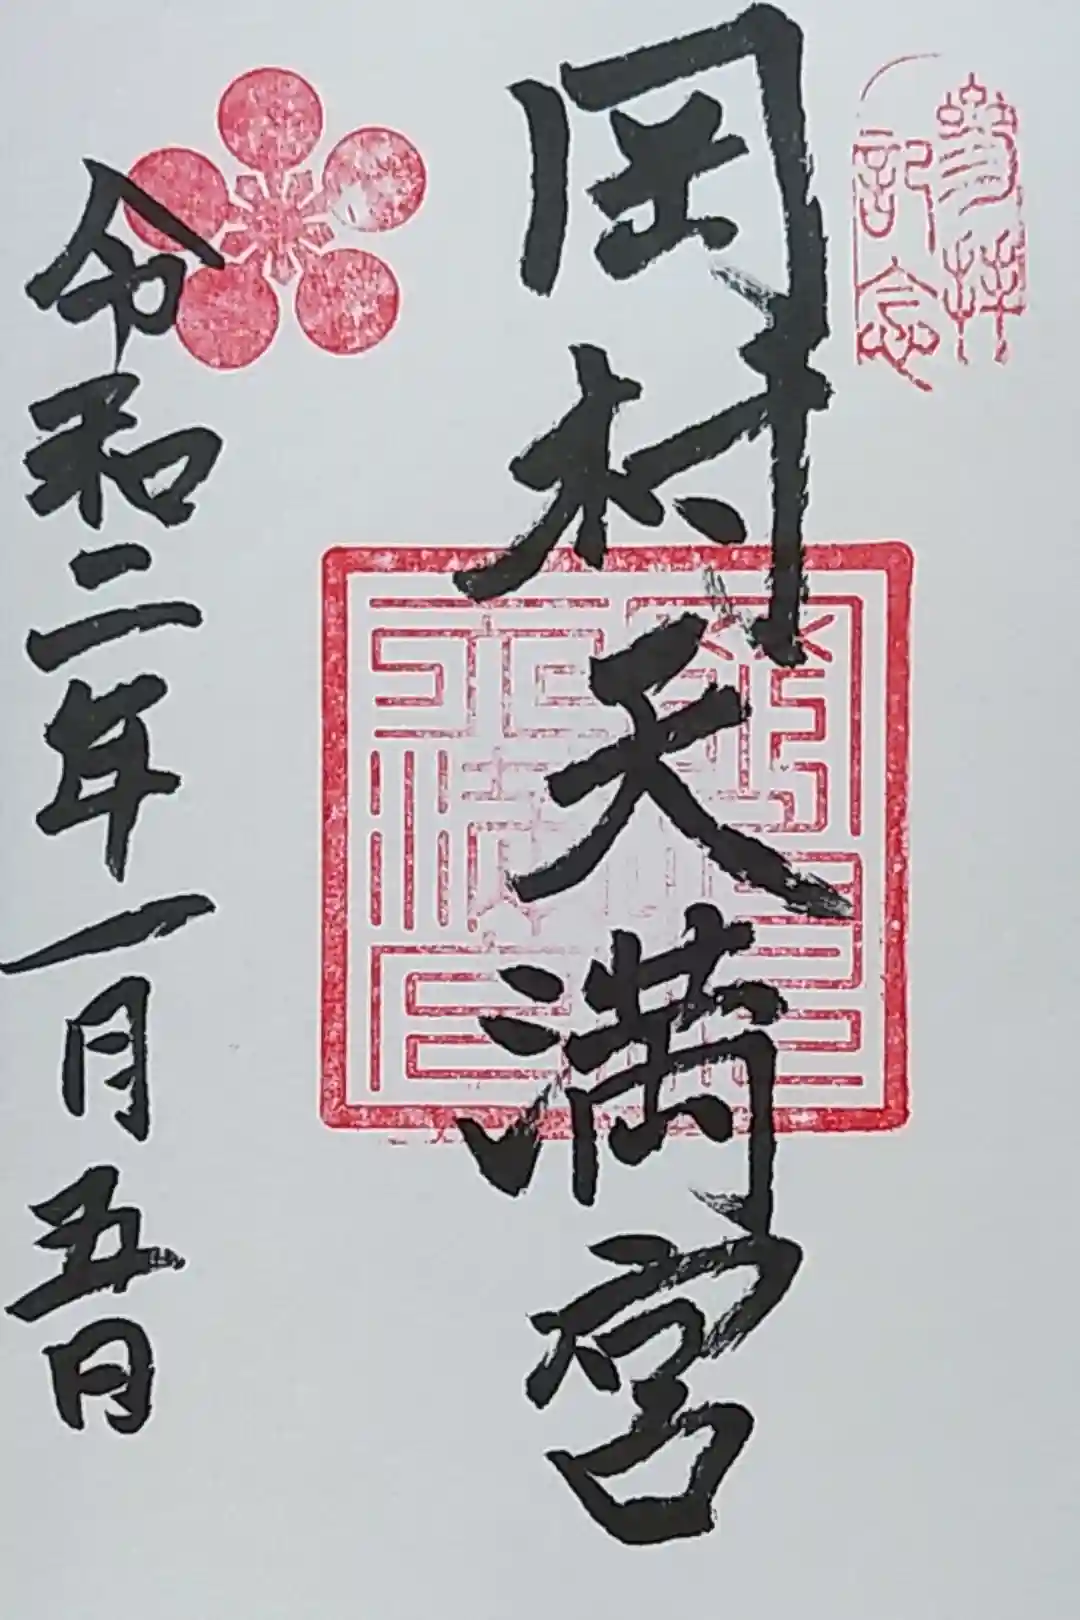 参拝
記念
岡村天満宮
令和二年一月五日